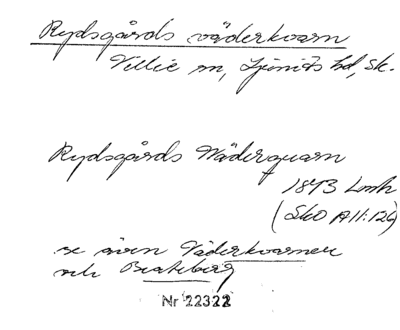 Rydsgårds väderkvarn
Villie sn, Ljunits hd, Sk.
Rydsgårds Wäderquarn
1873 Lmk
(Sko A11:126)
se även Väderkvarnen
och Beateberg
Nr 22322